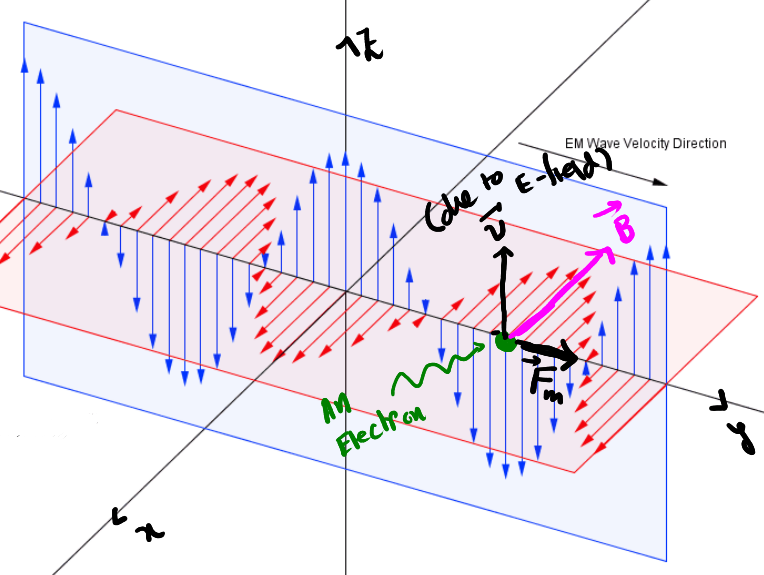 z
EM Wave Velocity Direction
(due to E-field)
v
B
An
Electron
Fm
y
x